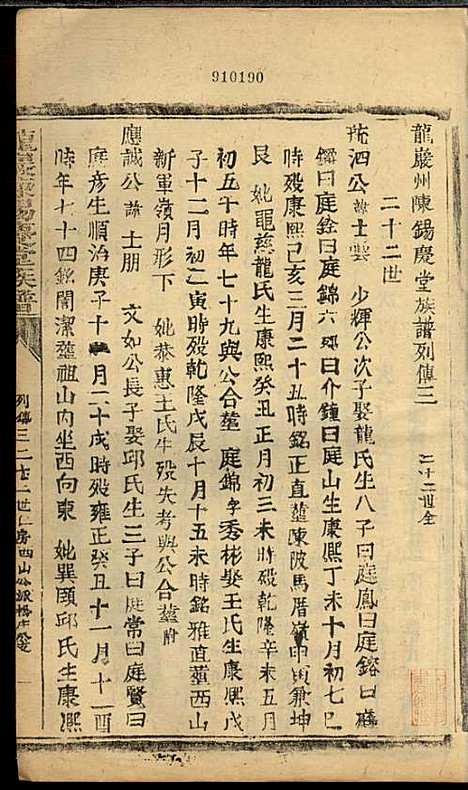 910190
龍巖州陳錫慶堂族譜列傳三 二十二世全
二十二世
琉泗公諱士雲 少輝公次子娶龍氏生八子曰庭鳳曰庭鎔曰庭
鐸曰庭銓曰庭錦六 曰介鐘曰庭山生康熙丁未十月初七巳
時歿康熙己亥三月二十五時銘正直塟陳陂馬厝嶺甲寅兼坤
艮 妣黽慈龍氏生康熙癸丑正月初三未時歿乾隆辛未五月
初五午時年七十九與公合塟 庭錦字秀彬娶王氏生康熙戊
子十二月初二寅時歿乾隆戊辰十月十五未時銘雅直塟西山
新軍嶺月形下 妣恭惠王氏生歿失考與公合塟附
應誠公諱士朋 文如公長子娶邱氏生三子曰庭常曰庭賢曰
庭彥生順治庚子十 月二十戌時歿雍正癸丑十一月十一酉
時年七十四銘闇潔塟祖山内坐西向東 妣巽頤邱氏生康熙
列傳三 二十二世 房西山公派